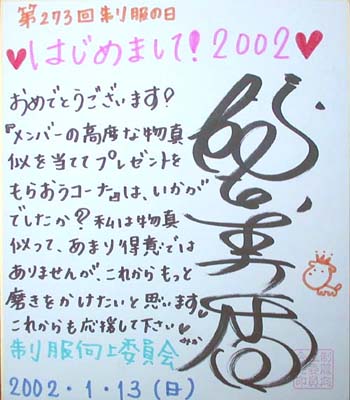 第273回制服の日
♥はじめまして!2002♥
おめでとうございます?
『メンバーの高度な物真
似を当ててプレゼントを
もらおうコーナー』は、いかが
でしたか?私は物真
似って、あまり得意では
ありませんが、これからもっと
磨きをかけたいと思います♥
これからも応援して下さい♥
制服向上委員会
2002・1・13(日)